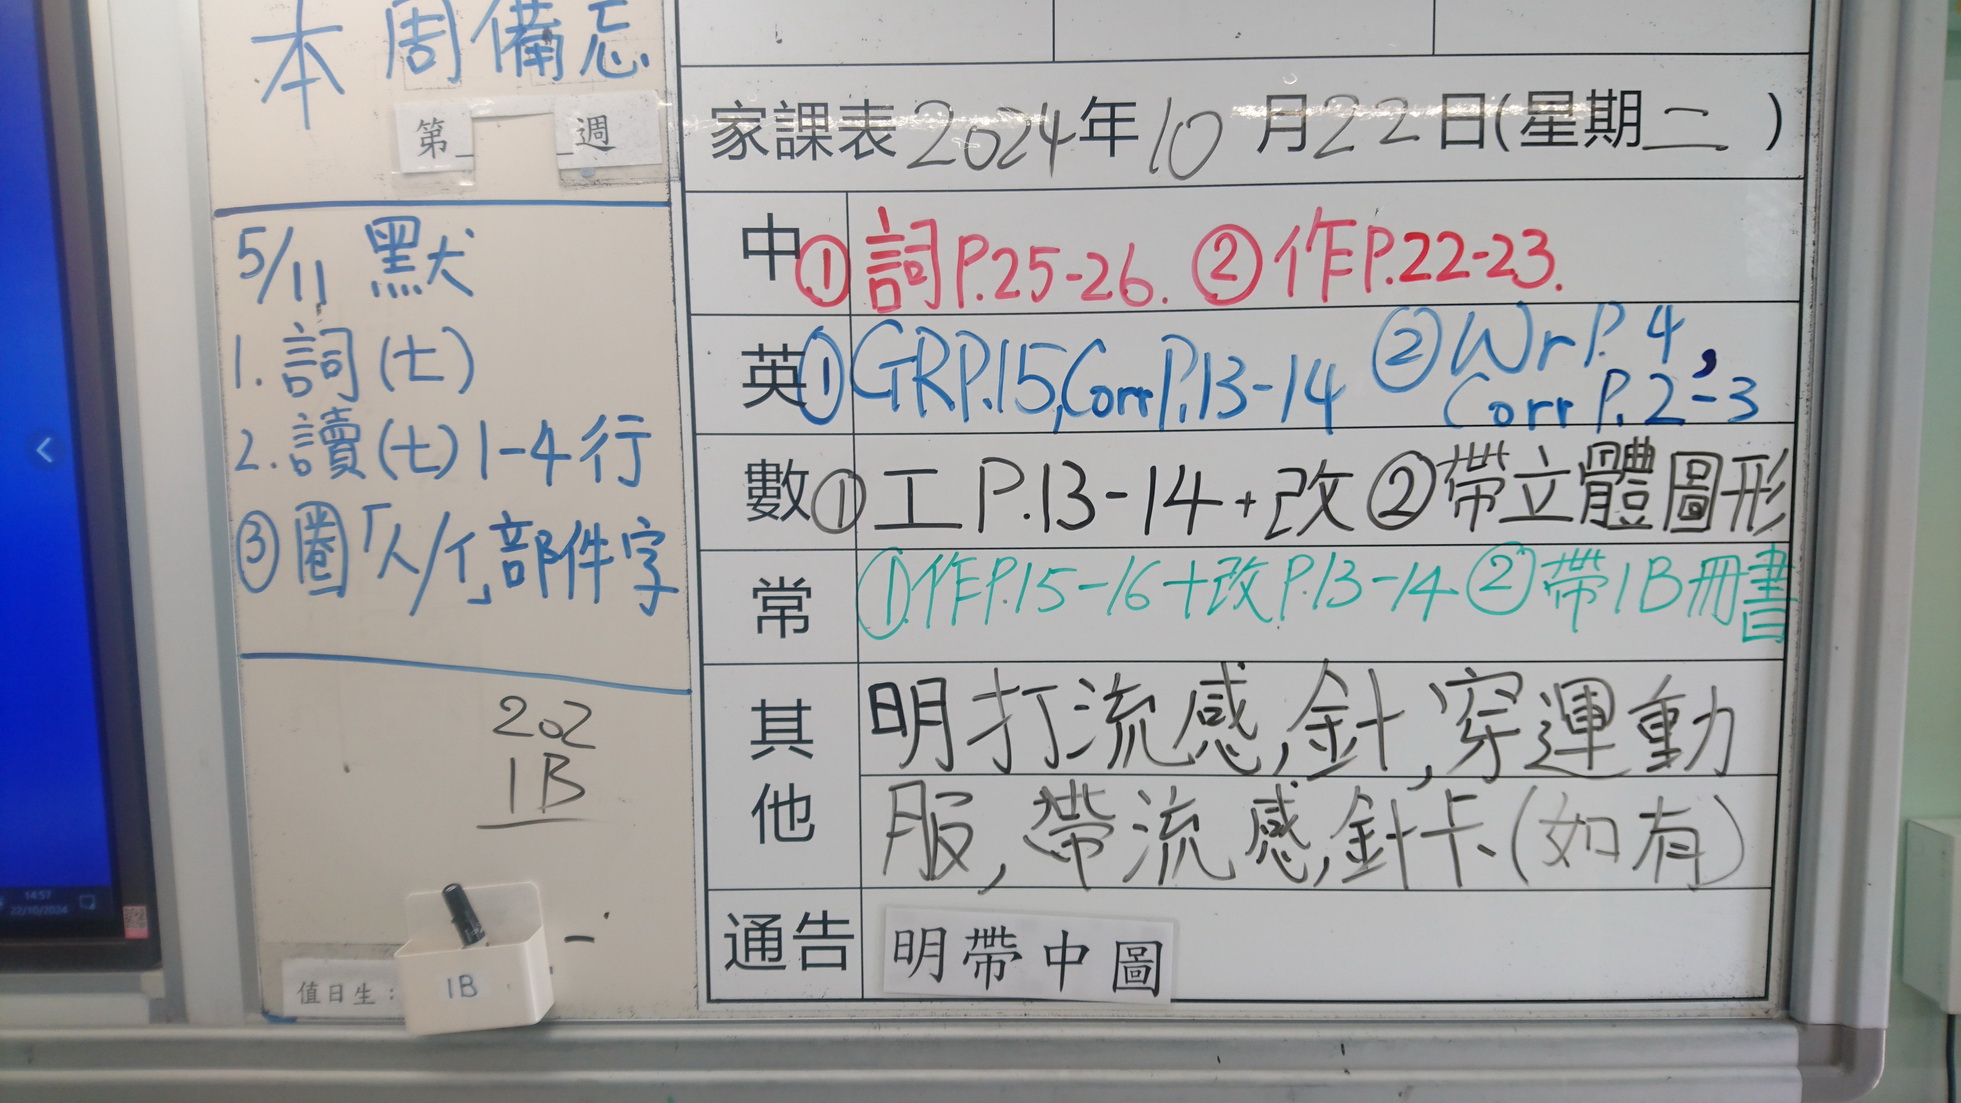 本周備忘
第_ _週
5/11 默
1. 詞(七)
2. 讀(七) 1-4行
③ 圈「人/亻」部件字
202
1B
值日生：
1B
14:57
22/10/2024
家課表 2024年10月22日(星期二)
中 ① 詞P.25-26. ② 作P.22-23.
英 ① GRP.15, Corr P.13-14 ② Wr P.4,
Corr P.2-3
數 ① 工 P.13-14+改 ② 帶立體圖形
常 ① 作P.15-16+改P.13-14 ② 帶1B冊書
其他 明打流感針,穿運動
服,帶流感針卡(如有)
通告 明帶中圖